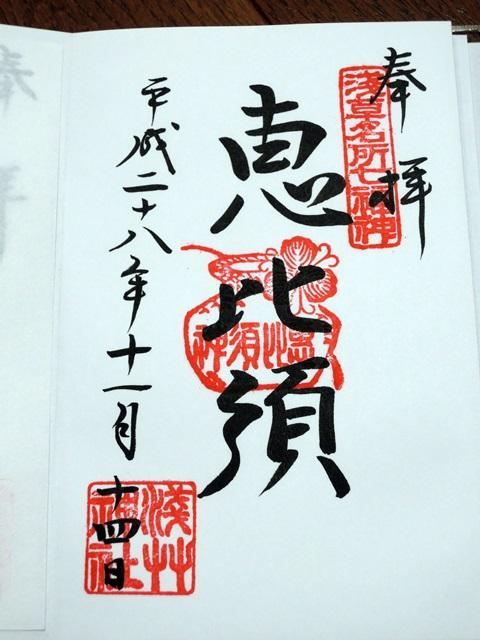 奉拝
浅草名所七福神
恵比須
恵比須神
平成二十八年十一月十四日
浅草神社